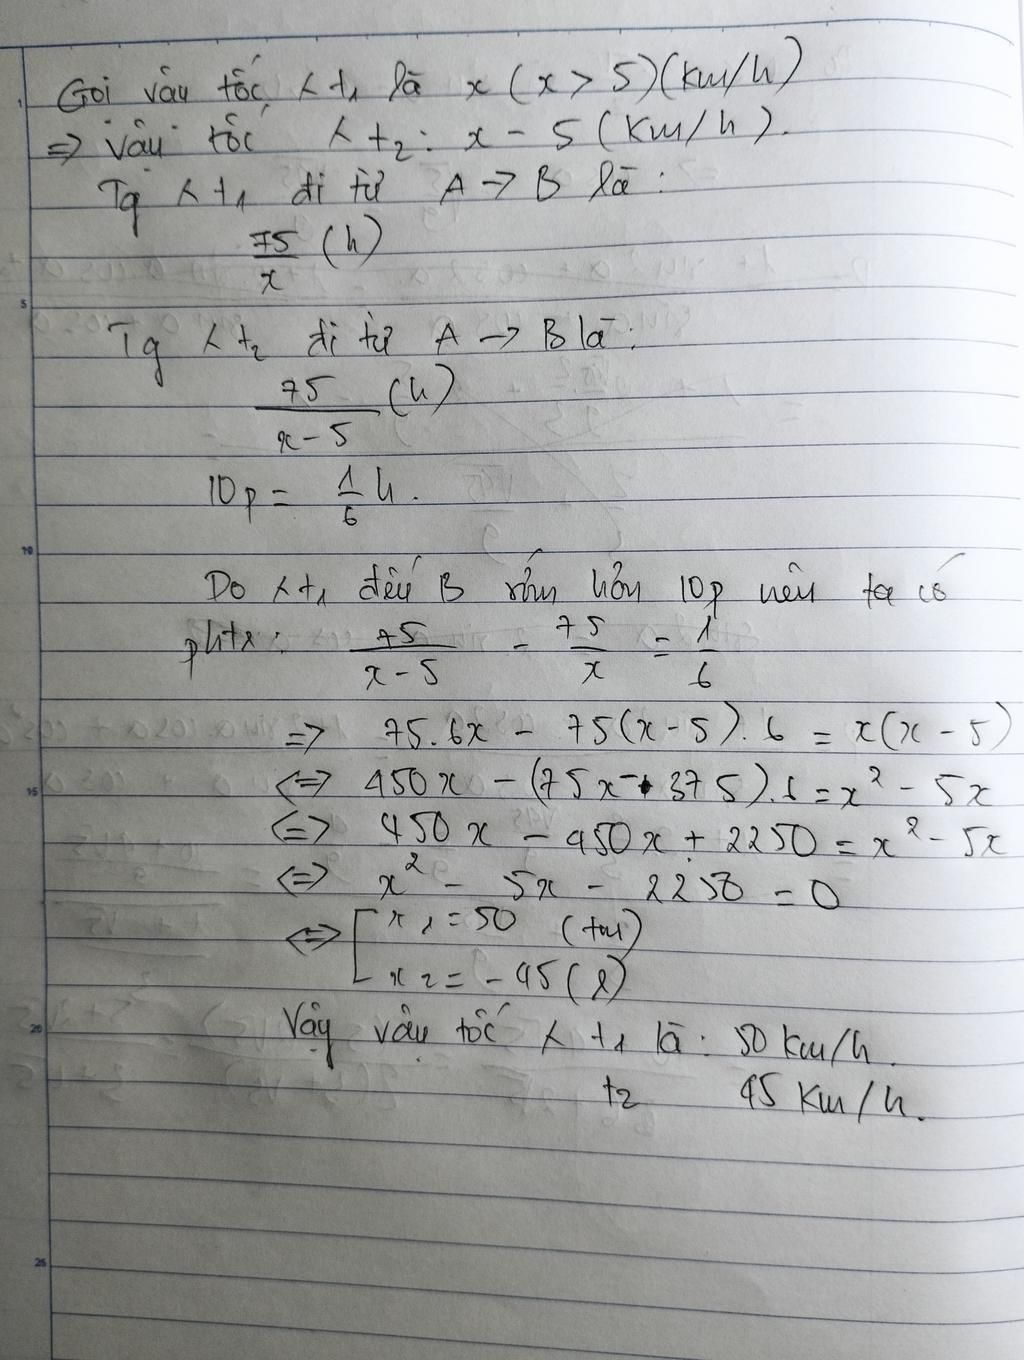 Gọi vận tốc xt₁ là x (x > 5)(km/h)
=> vận tốc xt₂: x - 5 (km/h).
Tg xt₁ đi từ A -> B là:
75/x (h)
Tg xt₂ đi từ A -> B là:
75/(x - 5) (h)
10p = 1/6 h.
Do xt₁ đến B sớm hơn 10p nên ta có
phtr: 75/(x - 5) - 75/x = 1/6
=> 75.6x - 75(x - 5).6 = x(x - 5)
<=> 450x - (75x - 375).6 = x² - 5x
<=> 450x - 450x + 2250 = x² - 5x
<=> x² - 5x - 2250 = 0
<=> [ x₁ = 50 (tm)
x₂ = -45 (l)
Vậy vận tốc xt₁ là: 50 km/h.
t₂ 45 km/h.
1
5
10
15
20
25